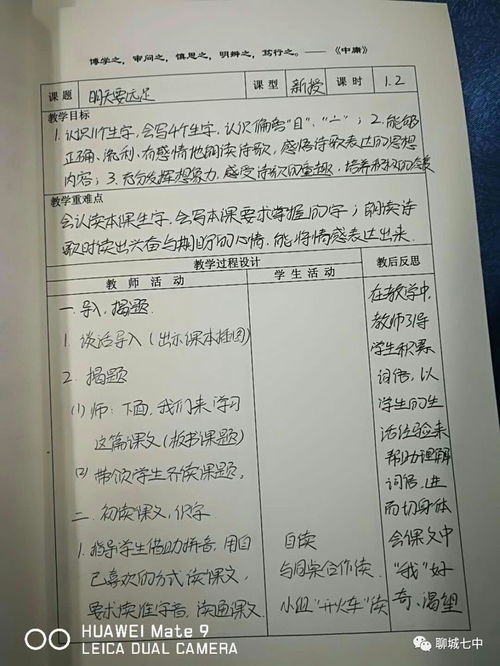 博学之，审问之，慎思之，明辨之，笃行之。——《中庸》
课题 明天要远足 课型 新授 课时 1.2
教学目标
1.认识11个生字，会写4个生字，认识偏旁"目"、"亠"；2.能够
正确、流利、有感情地朗读诗歌，感悟诗歌表达的思想
内容；3.充分发挥想象力，感受诗歌的童趣，培养积极的情感
教学重难点
会认读本课生字，会写本课要求掌握的字；朗读诗
歌时读出兴奋与期盼的心情，能将情感表达出来.
教学过程设计 教后反思
教师活动 学生活动
一.导入，揭题.
1.谈话导入（出示课本插图）
2.揭题
(1)师：下面，我们来学习
这篇课文（板书课题）
(2)带领学生齐读课题。
二.初读课文，识字
1.指导学生借助拼音，用自
己喜欢的方式读课文，
要求读准字音，读通课文
自读
与同桌合作读.
小组"开火车"读
在教学中，
教师引导
学生积累
词语，以
学生的生
活经验来
帮助理解
词语，进
而切身体
会课文中
"我"好
奇、渴望
HUAWEI Mate 9
LEICA DUAL CAMERA
聊城七中